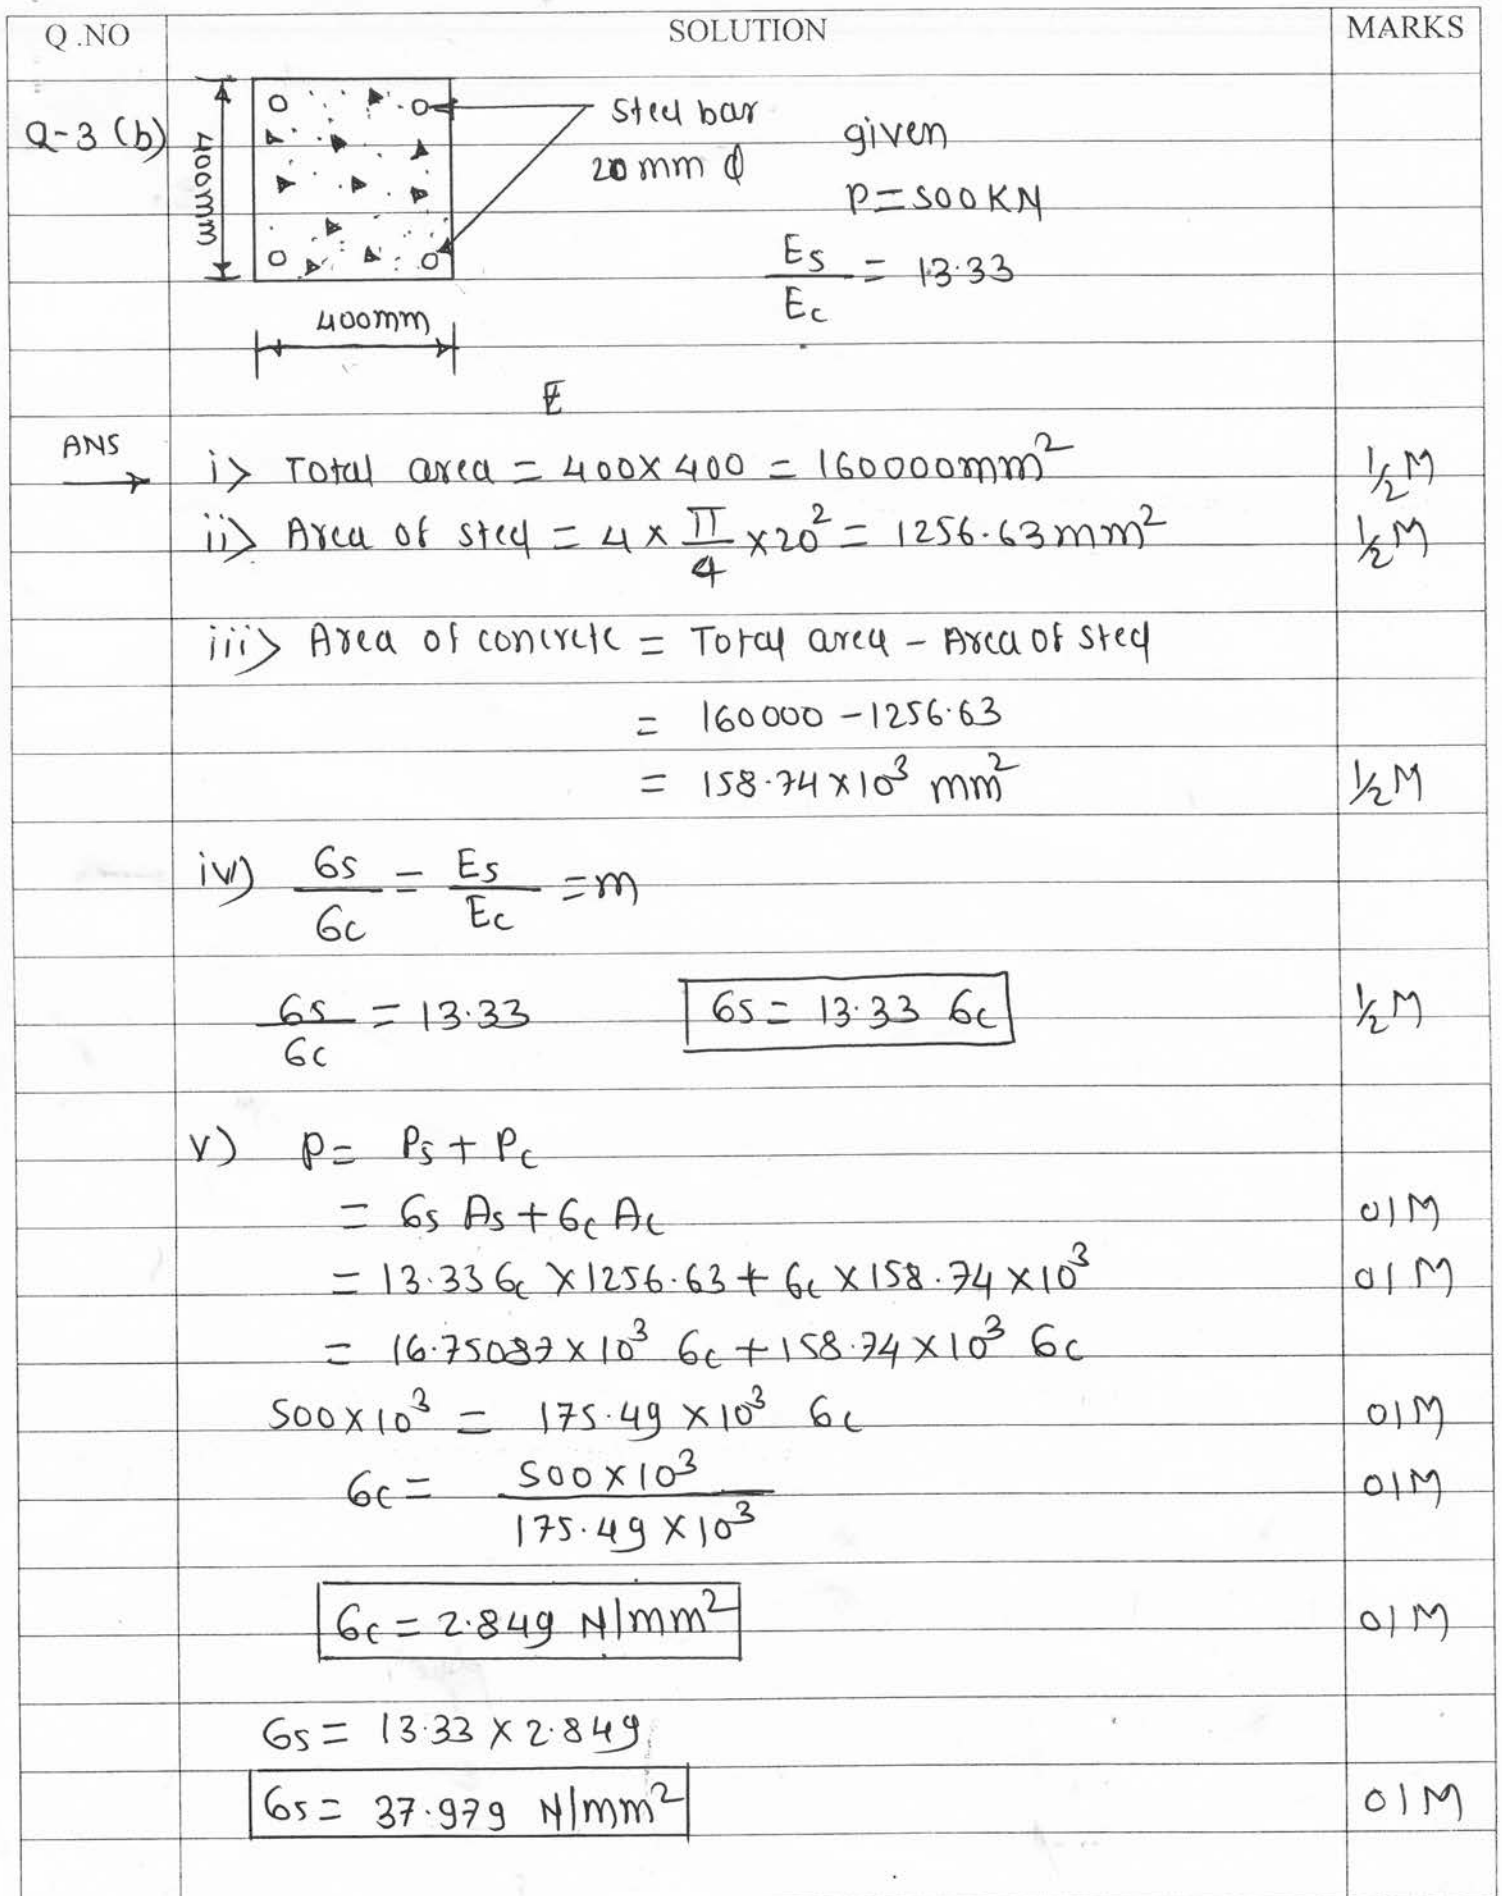 Q.NO SOLUTION MARKS
Q-3 (b)
400mm
Steel bar
20 mm ϕ
given
P = 500 KN
Es/Ec = 13.33
400mm
E
ANS
i> Total area = 400 × 400 = 160000 mm² ½ M
ii> Area of steel = 4 × π/4 × 20² = 1256.63 mm² ½ M
iii> Area of concrete = Total area - Area of steel
= 160000 - 1256.63
= 158.74 × 10³ mm² ½ M
iv) σs/σc = Es/Ec = m
σs/σc = 13.33 σs = 13.33 σc ½ M
v) P = Ps + Pc
= σs As + σc Ac 01 M
= 13.33 σc × 1256.63 + σc × 158.74 × 10³ 01 M
= 16.75087 × 10³ σc + 158.74 × 10³ σc
500 × 10³ = 175.49 × 10³ σc 01 M
σc = 500 × 10³ / 175.49 × 10³ 01 M
σc = 2.849 N/mm² 01 M
σs = 13.33 × 2.849
σs = 37.979 N/mm² 01 M